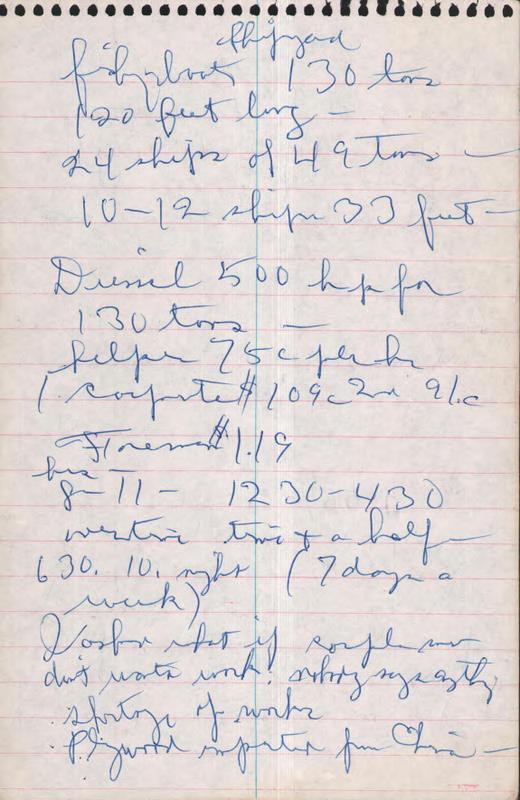 Shipyard
fishing boats 130 tons
120 feet long —
24 ships of 49 tons —
10-12 ships 33 feet —
Diesel 500 hp for
130 tons —
helper 75c per hr
1. carpenter $1.09c 2nd 91.c
Foreman $1.19
hrs
8 — 11 — 1230-430
overtime time + a half —
630. 10. night (7 days a
week)
what if couple men
don't want work. nobody says anything
shortage of works
Plywood imported from China —